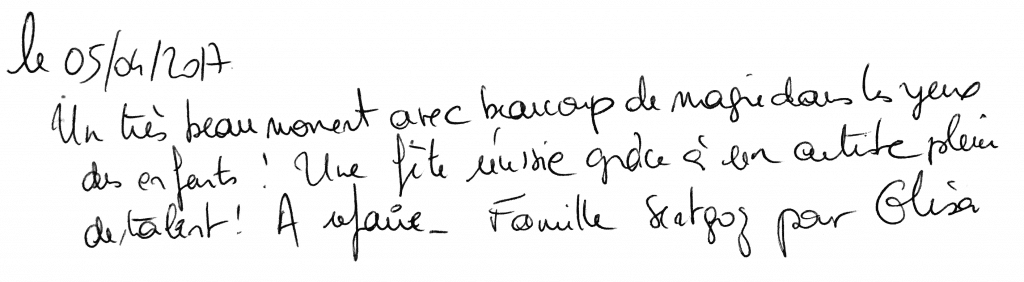 le 05/04/2017
Un très beau moment avec beaucoup de magie dans les yeux
des enfants ! Une fête réussie grâce à un artiste plein
de talent ! A refaire _ Famille pour Elisa